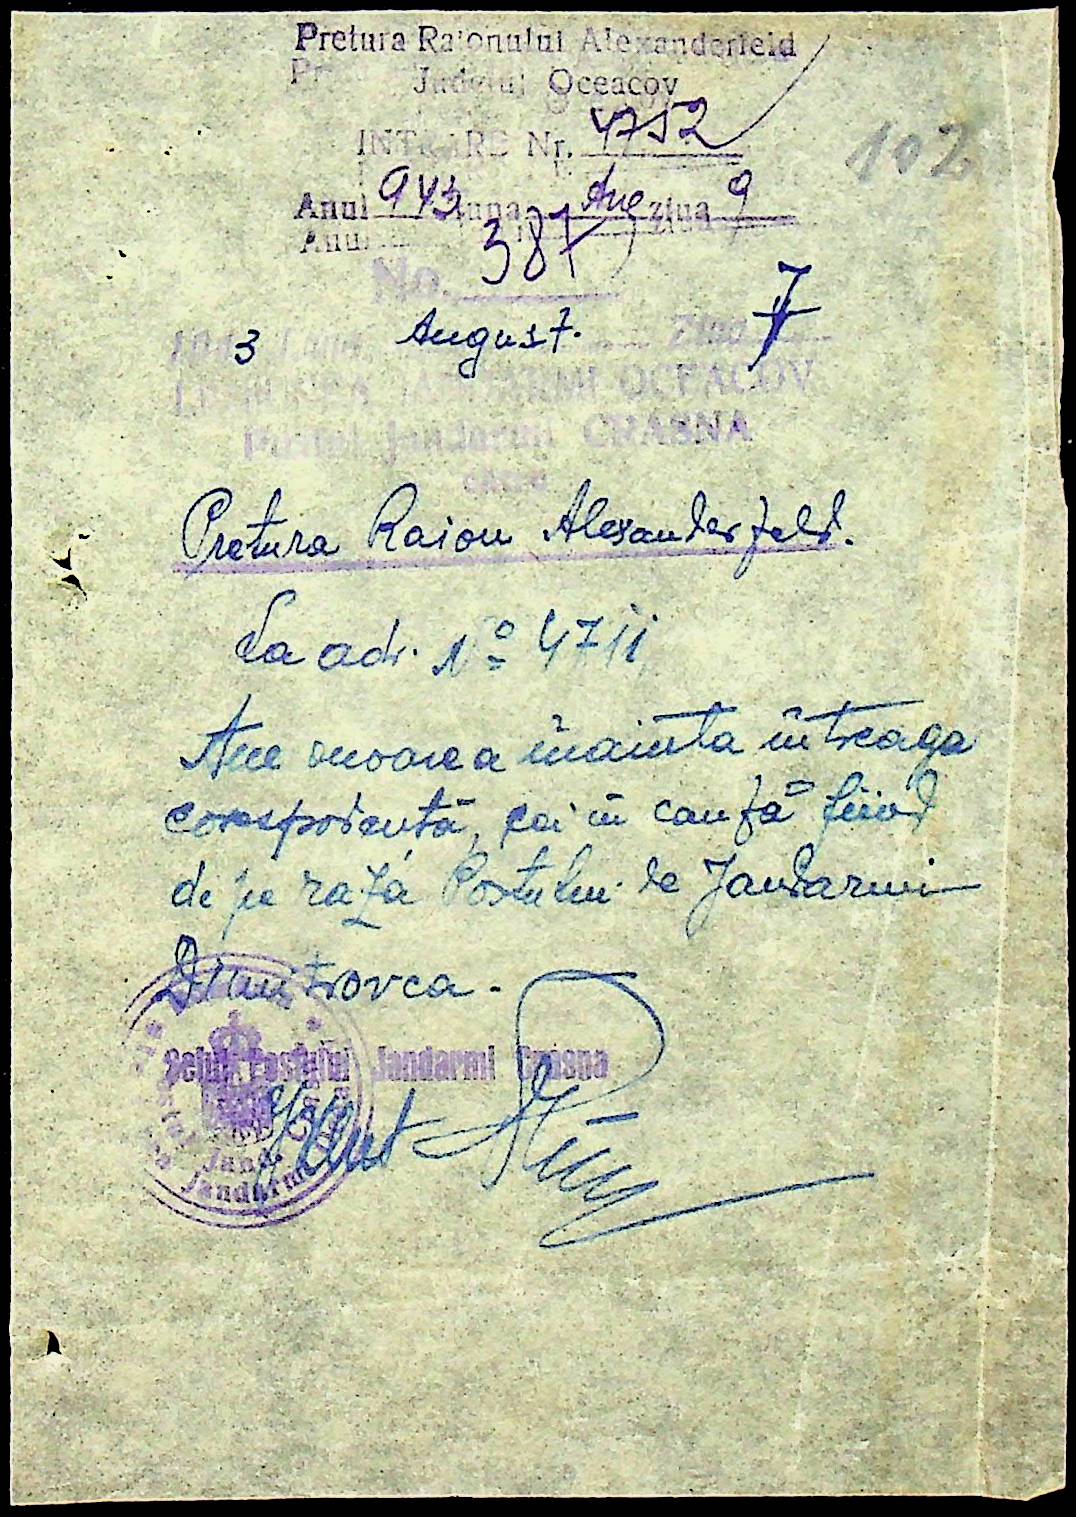 Pretura Raionului Alexanderfeld
Județul Oceacov
INTRARE Nr. 4752
102
Anul 943 luna Aug ziua 9
387
No.
1943 Luna August. Ziua 7
LEGIUNEA JANDARMI OCEACOV
Postul Jandarmi CRASNA
către
Pretura Raion Alexanderfeld.
La adr. No 4711
Am onoarea înainta întreaga
corespodentă, cei în cauză fiind
de pe raza Postului de Jandarmi
Dimitrovca.
Șeful Postului Jandarmi Crasna
Jand.
Jandarmi